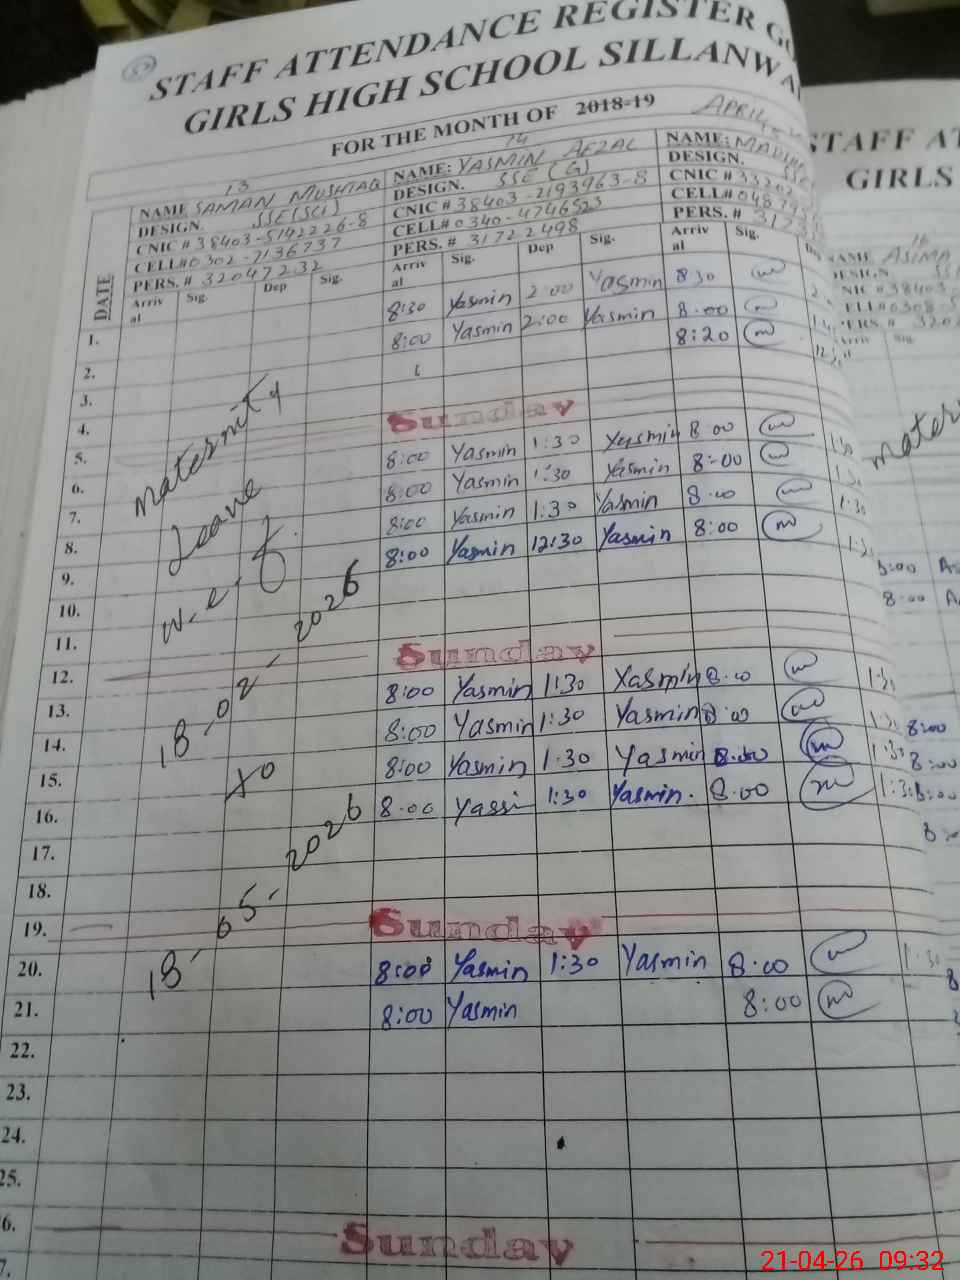 STAFF ATTENDANCE REGISTER
GIRLS HIGH SCHOOL SILLANWA
FOR THE MONTH OF 2018-19 APRIL
13
NAME SAMAN MUSHTAQ
DESIGN. SSE(SCI)
CNIC # 38403-5142226-8
CELL# 0302-7136737
PERS. # 32047232
14
NAME: YASMIN AFZAL
DESIGN. SSE (G)
CNIC # 38403-2193963-8
CELL# 0340-4746523
PERS. # 31722498
NAME:
DESIGN.
CNIC #
CELL#
PERS. #
DATE
Arriv al Sig. Dep Sig. Arriv al Sig. Dep Sig. Arriv al Sig.
8:30 Yasmin 2:00 Yasmin 8:30
1. 8:00 Yasmin 2:00 Yasmin 8:00
2. 8:20
3.
4. Sunday
5. 8:00 Yasmin 1:30 Yasmin 8:00
6. 8:00 Yasmin 1:30 Yasmin 8:00
7. 8:00 Yasmin 1:30 Yasmin 8:00
8. 8:00 Yasmin 12:30 Yasmin 8:00
9.
10.
11. Sunday
12. 8:00 Yasmin 1:30 Yasmin 8:00
13. 8:00 Yasmin 1:30 Yasmin 8:00
14. 8:00 Yasmin 1:30 Yasmin 8:00
15. 8:00 Yassi 1:30 Yasmin. 8:00
16.
17.
18.
19. Sunday
20. 8:00 Yasmin 1:30 Yasmin 8:00
21. 8:00 Yasmin 8:00
22.
23.
24.
25.
6. Sunday
7.
Maternity
Leave
w.e.f.
18-02-2026
to
18-05-2026
STAFF AT
GIRLS
16
NAME ASIMA
21-04-26 09:32